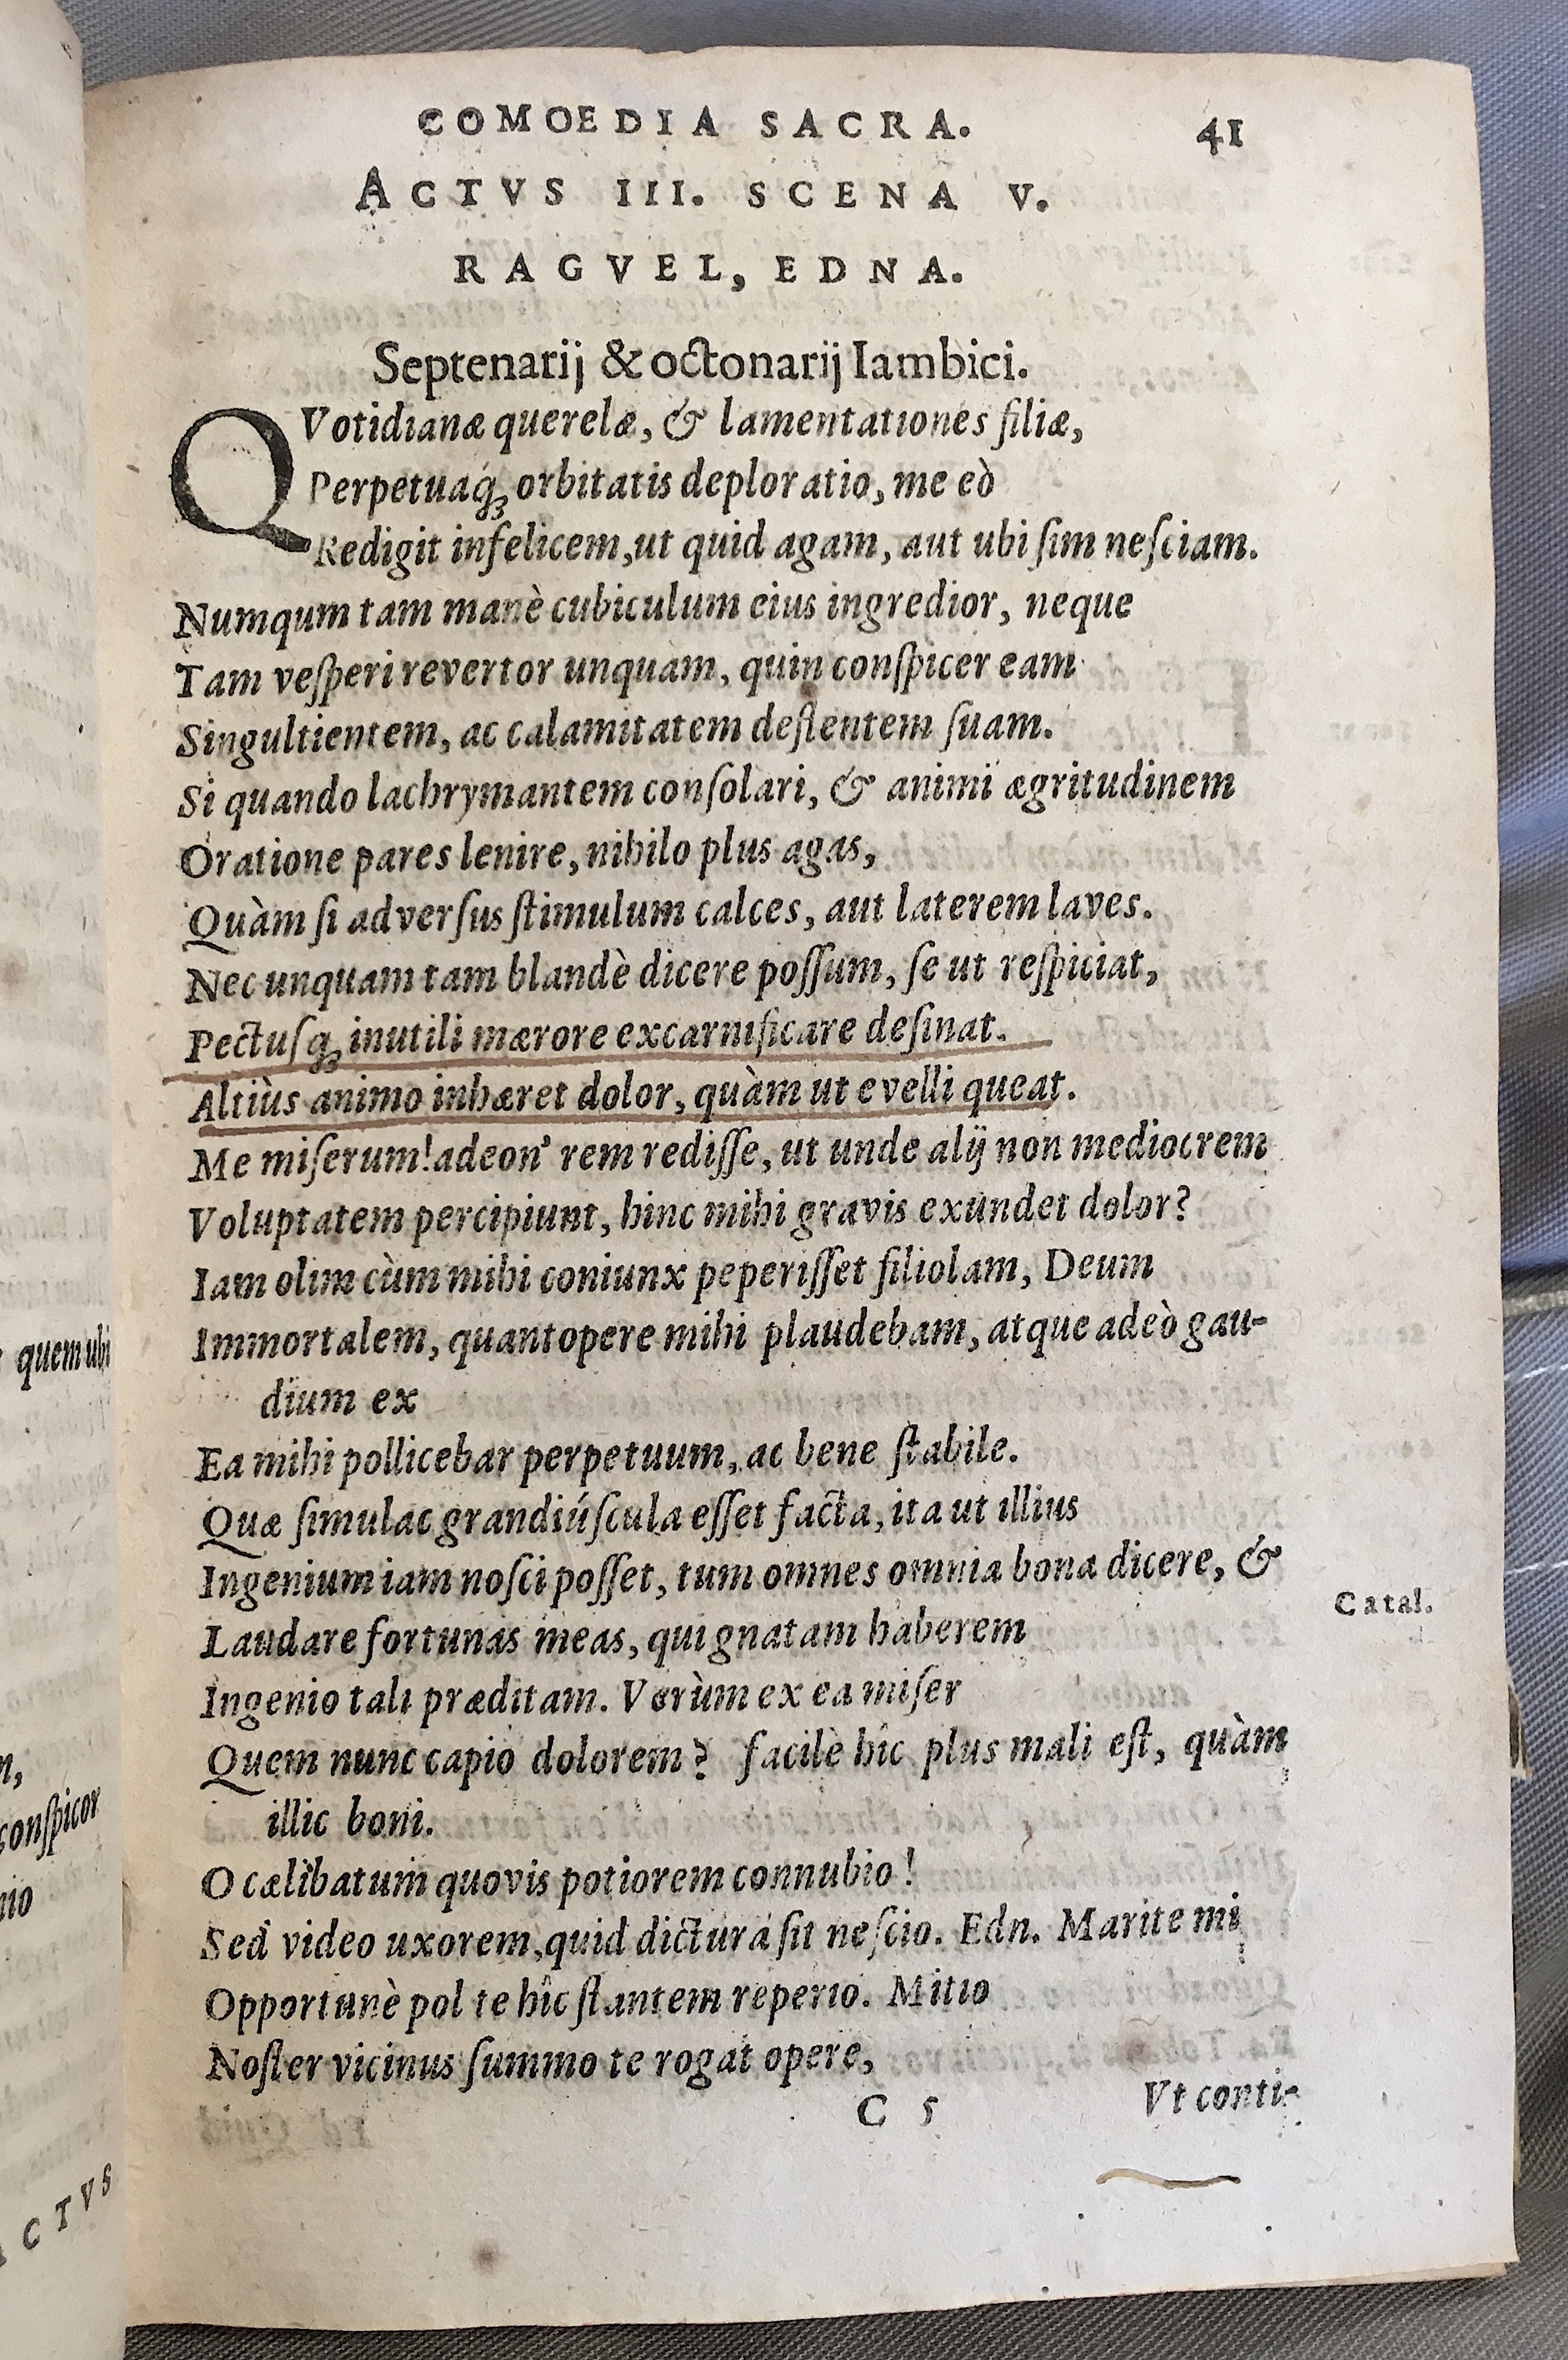 COMOEDIA SACRA. 41
ACTVS III. SCENA V.
RAGVEL, EDNA.
Septenarij & octonarij Iambici.
QVotidianæ querelæ, & lamentationes filiæ,
Perpetuaq́ꝫ orbitatis deploratio, me eò
Redigit infelicem, ut quid agam, aut ubi ſim neſciam.
Numqum tam manè cubiculum eius ingredior, neque
Tam veſperi revertor unquam, quin conſpicer eam
Singultientem, ac calamitatem deflentem ſuam.
Si quando lachrymantem conſolari, & animi ægritudinem
Oratione pares lenire, nihilo plus agas,
Quàm ſi adverſus ſtimulum calces, aut laterem laves.
Nec unquam tam blandè dicere poſſum, ſe ut reſpiciat,
Pectuſqꝫ inutili mærore excarnificare deſinat.
Altiùs animo inhæret dolor, quàm ut evelli queat.
Me miſerum! adeon' rem rediſſe, ut unde alij non mediocrem
Voluptatem percipiunt, hinc mihi gravis exundet dolor?
Iam olim cùm mihi coniunx peperiſſet filiolam, Deum
Immortalem, quantopere mihi plaudebam, atque adeò gau-
dium ex
Ea mihi pollicebar perpetuum, ac bene ſtabile.
Quæ ſimulac grandiúſcula eſſet facta, ita ut illius
Ingenium iam noſci poſſet, tum omnes omnia bona dicere, &
Laudare fortunas meas, qui gnatam haberem
Ingenio tali præditam. Verùm ex ea miſer
Quem nunc capio dolorem? facilè hîc plus mali eſt, quàm
illic boni.
O cælibatum quovis potiorem connubio!
Sed video uxorem, quid dictura ſit neſcio. Edn. Marite mi
Opportunè pol te hîc ſtantem reperio. Mitio
Noſter vicinus ſummo te rogat opere,
C 5 Vt conti-
Catal.
quem ubi
m,
conſpicor
nio
ACTVS